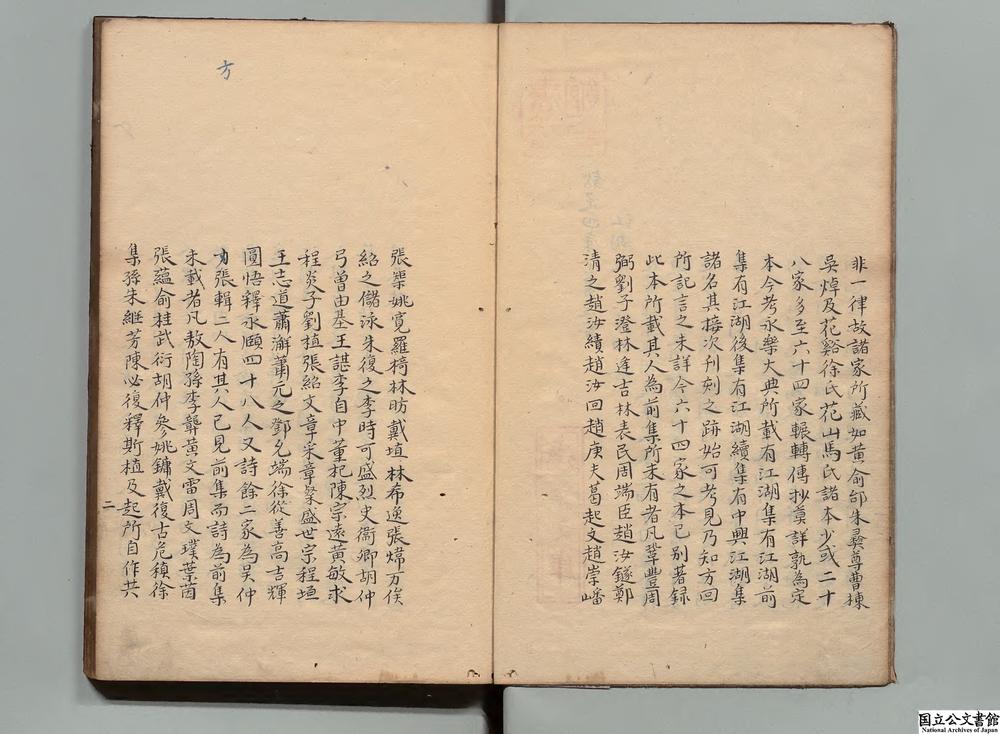 非一律故諸家所藏如黄俞邰朱彝尊曹棟
吳焯及花谿徐氏花山馬氏諸本少或二十
八家多至六十四家輾轉傳抄莫詳孰為定
本今考永樂大典所載有江湖集有江湖前
集有江湖後集有江湖續集有中興江湖集
諸名其接次刋刻之跡始可考見乃知方回
所記言之未詳今六十四家之本已别著録
此本所載其人為前集所未有者凡鞏豐周
弼劉子澄林逢吉林表民周端臣趙汝鐩鄭
清之趙汝績趙汝回趙庚夫葛起文趙崇嶓
張榘姚寛羅椅林昉戴埴林希逸張煒万俟
紹之儲泳朱復之李時可盛烈史衛卿胡仲
弓曾由基王諶李自中董杞陳宗遠黄敏求
程炎子劉植張紹文章采章粲盛世宗程垣
王志道蕭澥蕭元之鄧允端徐從善高吉輝
圓悟釋永頤四十八人又詩餘二家為吳仲
方張輯二人有其人已見前集而詩為前集
未載者凡敖陶孫李龏黄文雷周文璞葉茵
張蘊俞桂武衍胡仲參姚鏞戴復古危稹徐
集孫朱継芳陳必復釋斯植及起所自作共
二
方
国立公文書館
National Archives of Japan